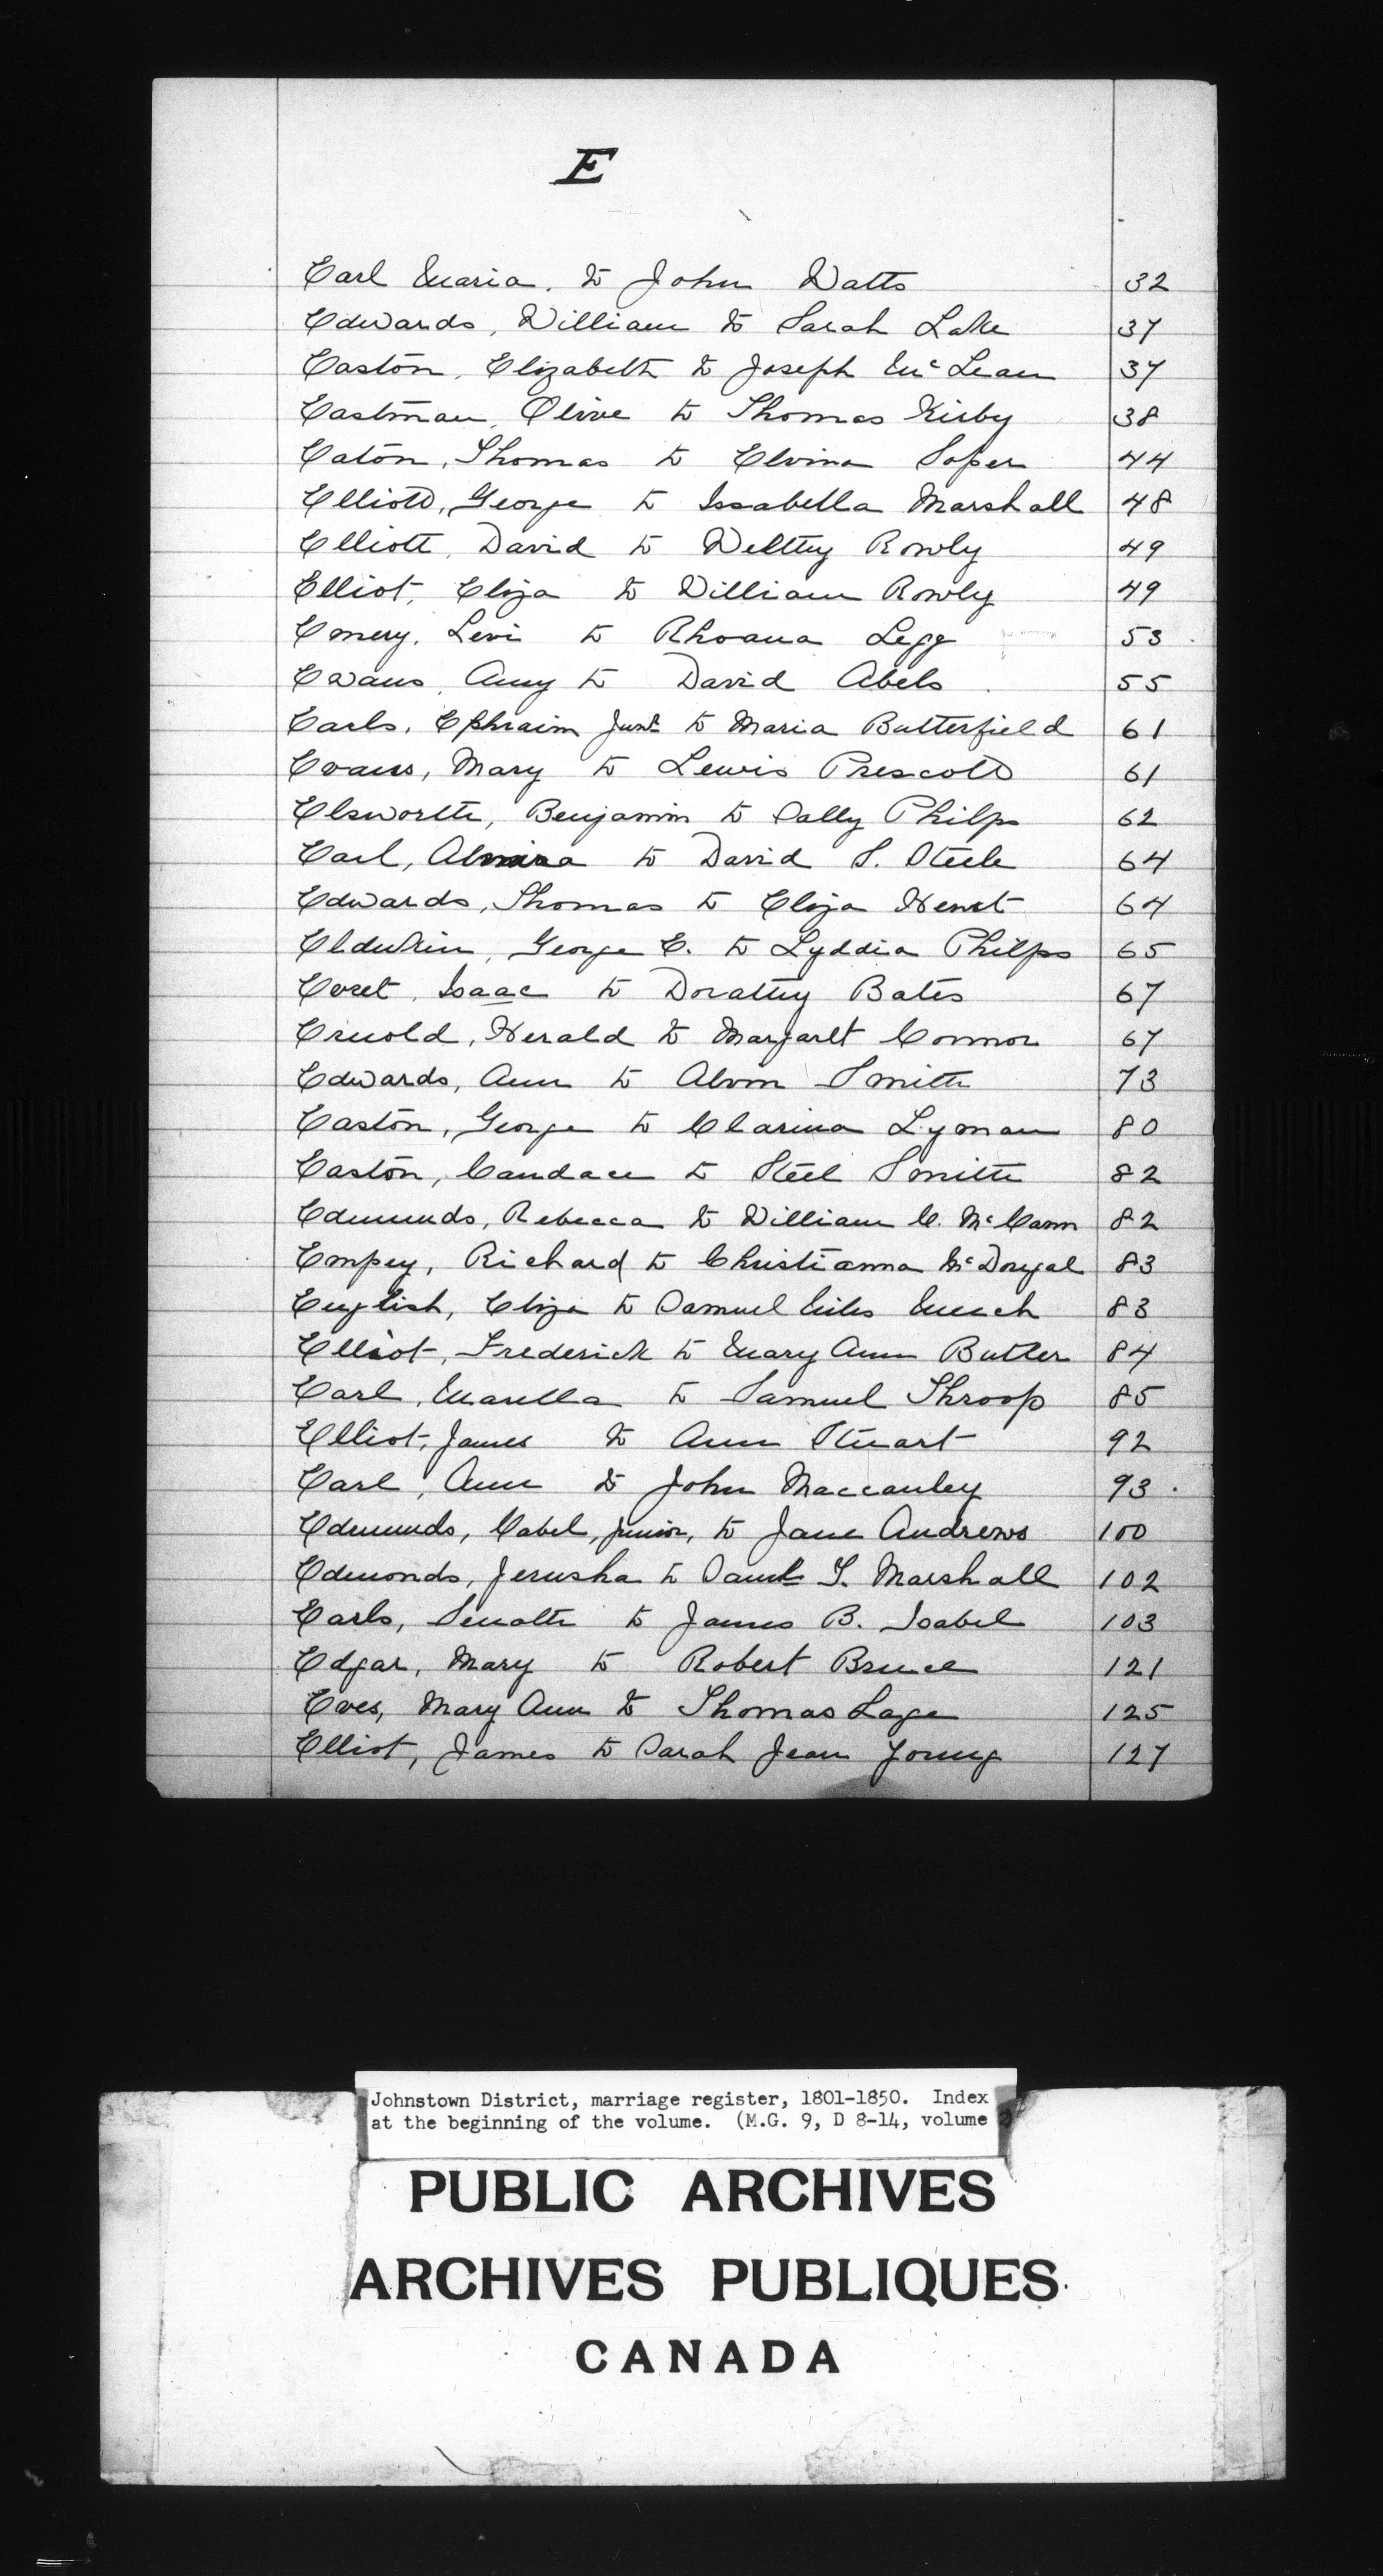 E
Earl Maria. to John Watts 32
Edwards, William to Sarah Lake 37
Easton, Elizabeth to Joseph McLean 37
Eastman, Olive to Thomas Kirby 38
Eaton, Thomas to Elvina Soper 44
Elliott, George to Issabella Marshall 48
Elliott, David to Welthy Rowly 49
Elliot, Eliza to William Rowly 49
Emery, Levi to Rhoana Legg 53
Evans, Amy to David Abels 55
Earls, Ephraim Junr to Maria Butterfield 61
Evans, Mary to Lewis Prescott 61
Elsworth, Benjamin to Sally Philps 62
Earl, Almira to David S. Steele 64
Edwards, Thomas to Eliza 64
Elderkin, George E. to Lyddia Philps 65
Everet, Isaac to Dorathy Bates 67
Ernold, Herald to Margaret Connor 67
Edwards, Ann to Alvin Smith 73
Easton, George to Clarina Lyman 80
Easton, Candace to Steel Smith 82
Edmunds, Rebecca to William C. McCann 82
Empey, Richard to Christianna McDougal 83
English, Eliza to Samuel Miles 83
Elliot, Frederick to Mary Ann Butler 84
Earl, Marilla to Samuel Throop 85
Elliot, James to Ann Stuart 92
Earl, Ann to John Maccauley 93
Edmunds, Cabel, junior, to Jane Andrews 100
Edmonds, Jerusha to Saml T. Marshall 102
Earls, to James B. Isabel 103
Edgar, Mary to Robert Bruce 121
Eves, Mary Ann to Thomas Lage 125
Elliot, James to Sarah Jean Young 127
Johnstown District, marriage register, 1801-1850. Index
at the beginning of the volume. (M.G. 9, D 8-14, volume 2)
PUBLIC ARCHIVES
ARCHIVES PUBLIQUES
CANADA